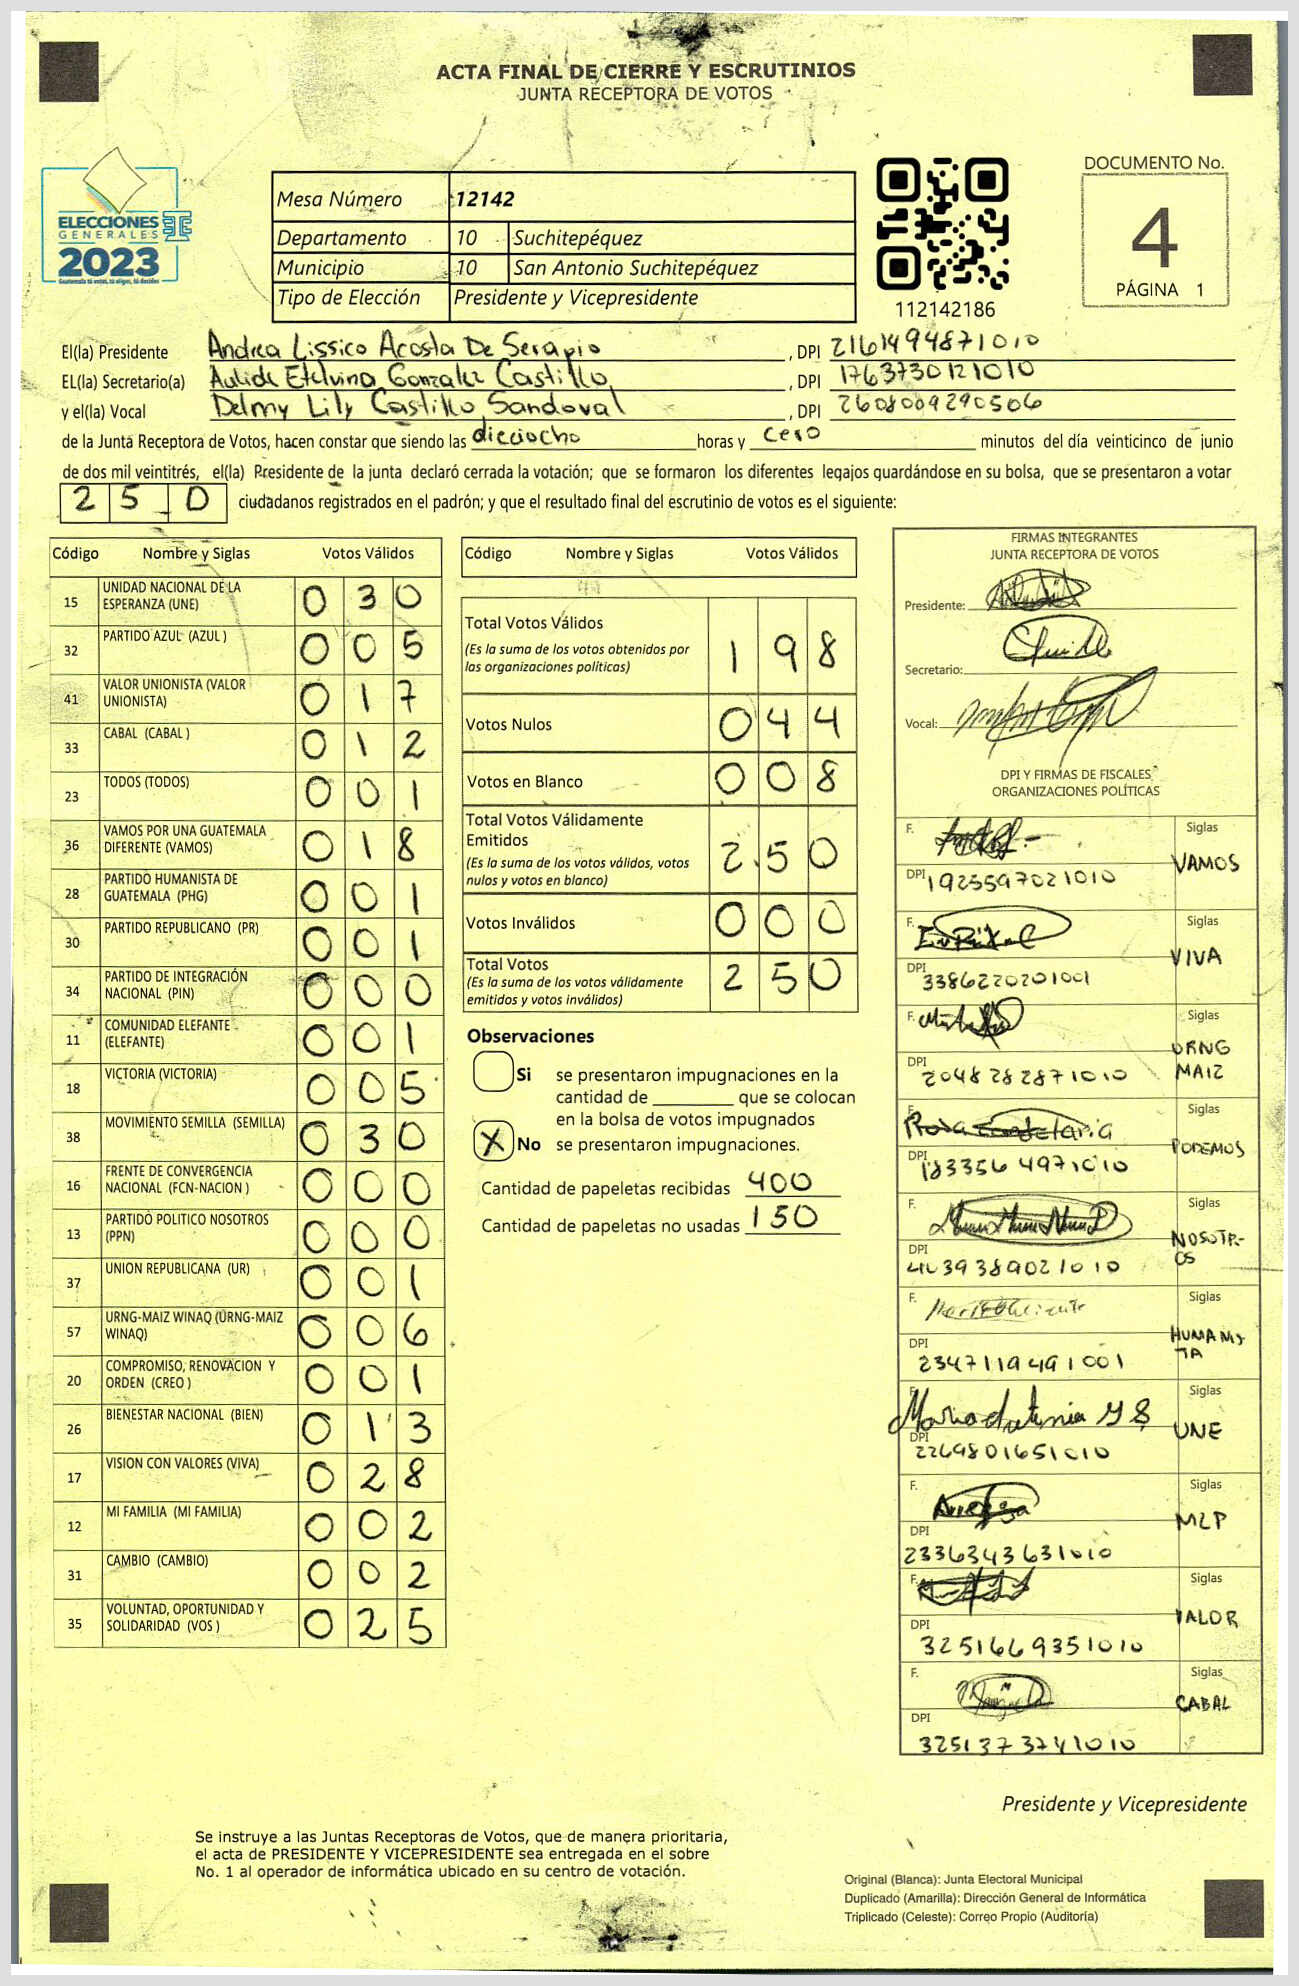 ACTA FINAL DE CIERRE Y ESCRUTINIOS
JUNTA RECEPTORA DE VOTOS
DOCUMENTO No.
4
PÁGINA 1
ELECCIONES
GENERALES
2023
Guatemala tú votas, tú eliges, tú decides
Mesa Número 12142
Departamento 10 Suchitepéquez
Municipio 10 San Antonio Suchitepéquez
Tipo de Elección Presidente y Vicepresidente
112142186
El(la) Presidente Andrea Lissico Acosta De Serapio, DPI 2161494871010
EL(la) Secretario(a) Aulide Etelvina Gonzalez Castillo, DPI 1763730121010
y el(la) Vocal Delmy Lily Castillo Sandoval, DPI 2608009290506
de la Junta Receptora de Votos, hacen constar que siendo las dieciocho horas y cero minutos del día veinticinco de junio
de dos mil veintitrés, el(la) Presidente de la junta declaró cerrada la votación; que se formaron los diferentes legajos quardándose en su bolsa, que se presentaron a votar
250 ciudadanos registrados en el padrón; y que el resultado final del escrutinio de votos es el siguiente:
Código Nombre y Siglas Votos Válidos
15 UNIDAD NACIONAL DE LA ESPERANZA (UNE) 030
32 PARTIDO AZUL (AZUL ) 005
41 VALOR UNIONISTA (VALOR UNIONISTA) 017
33 CABAL (CABAL ) 012
23 TODOS (TODOS) 001
36 VAMOS POR UNA GUATEMALA DIFERENTE (VAMOS) 018
28 PARTIDO HUMANISTA DE GUATEMALA (PHG) 001
30 PARTIDO REPUBLICANO (PR) 001
34 PARTIDO DE INTEGRACIÓN NACIONAL (PIN) 000
11 COMUNIDAD ELEFANTE (ELEFANTE) 001
18 VICTORIA (VICTORIA) 005
38 MOVIMIENTO SEMILLA (SEMILLA) 030
16 FRENTE DE CONVERGENCIA NACIONAL (FCN-NACION ) 000
13 PARTIDO POLITICO NOSOTROS (PPN) 000
37 UNION REPUBLICANA (UR) 001
57 URNG-MAIZ WINAQ (URNG-MAIZ WINAQ) 006
20 COMPROMISO, RENOVACION Y ORDEN (CREO ) 001
26 BIENESTAR NACIONAL (BIEN) 013
17 VISION CON VALORES (VIVA) 028
12 MI FAMILIA (MI FAMILIA) 002
31 CAMBIO (CAMBIO) 002
35 VOLUNTAD, OPORTUNIDAD Y SOLIDARIDAD (VOS ) 025
Código Nombre y Siglas Votos Válidos
Total Votos Válidos 198
(Es la suma de los votos obtenidos por
las organizaciones políticas)
Votos Nulos 044
Votos en Blanco 008
Total Votos Válidamente
Emitidos 250
(Es la suma de los votos válidos, votos
nulos y votos en blanco)
Votos Inválidos 000
Total Votos 250
(Es la suma de los votos válidamente
emitidos y votos inválidos)
Observaciones
Si se presentaron impugnaciones en la
cantidad de ________ que se colocan
en la bolsa de votos impugnados
X No se presentaron impugnaciones.
Cantidad de papeletas recibidas 400
Cantidad de papeletas no usadas 150
FIRMAS INTEGRANTES
JUNTA RECEPTORA DE VOTOS
Presidente:
Secretario:
Vocal:
DPI Y FIRMAS DE FISCALES
ORGANIZACIONES POLÍTICAS
F. Siglas VAMOS
DPI 1925597021010
F. Siglas VIVA
DPI 3386220201001
F. Siglas URNG MAIZ
DPI 2048282871010
F. Rosa Candelaria Siglas PODEMOS
DPI 1833564971010
F. Siglas NOSOTR-OS
DPI
F. Siglas HUMANIS TA
DPI 2347119491001
F. Siglas UNE
DPI 2269801651010
F. Siglas MLP
DPI 2336343631010
F. Siglas VALOR
DPI 3251669351010
F. Siglas CABAL
DPI 3251373741010
Presidente y Vicepresidente
Se instruye a las Juntas Receptoras de Votos, que de manera prioritaria,
el acta de PRESIDENTE Y VICEPRESIDENTE sea entregada en el sobre
No. 1 al operador de informática ubicado en su centro de votación.
Original (Blanca): Junta Electoral Municipal
Duplicado (Amarilla): Dirección General de Informática
Triplicado (Celeste): Correo Propio (Auditoría)